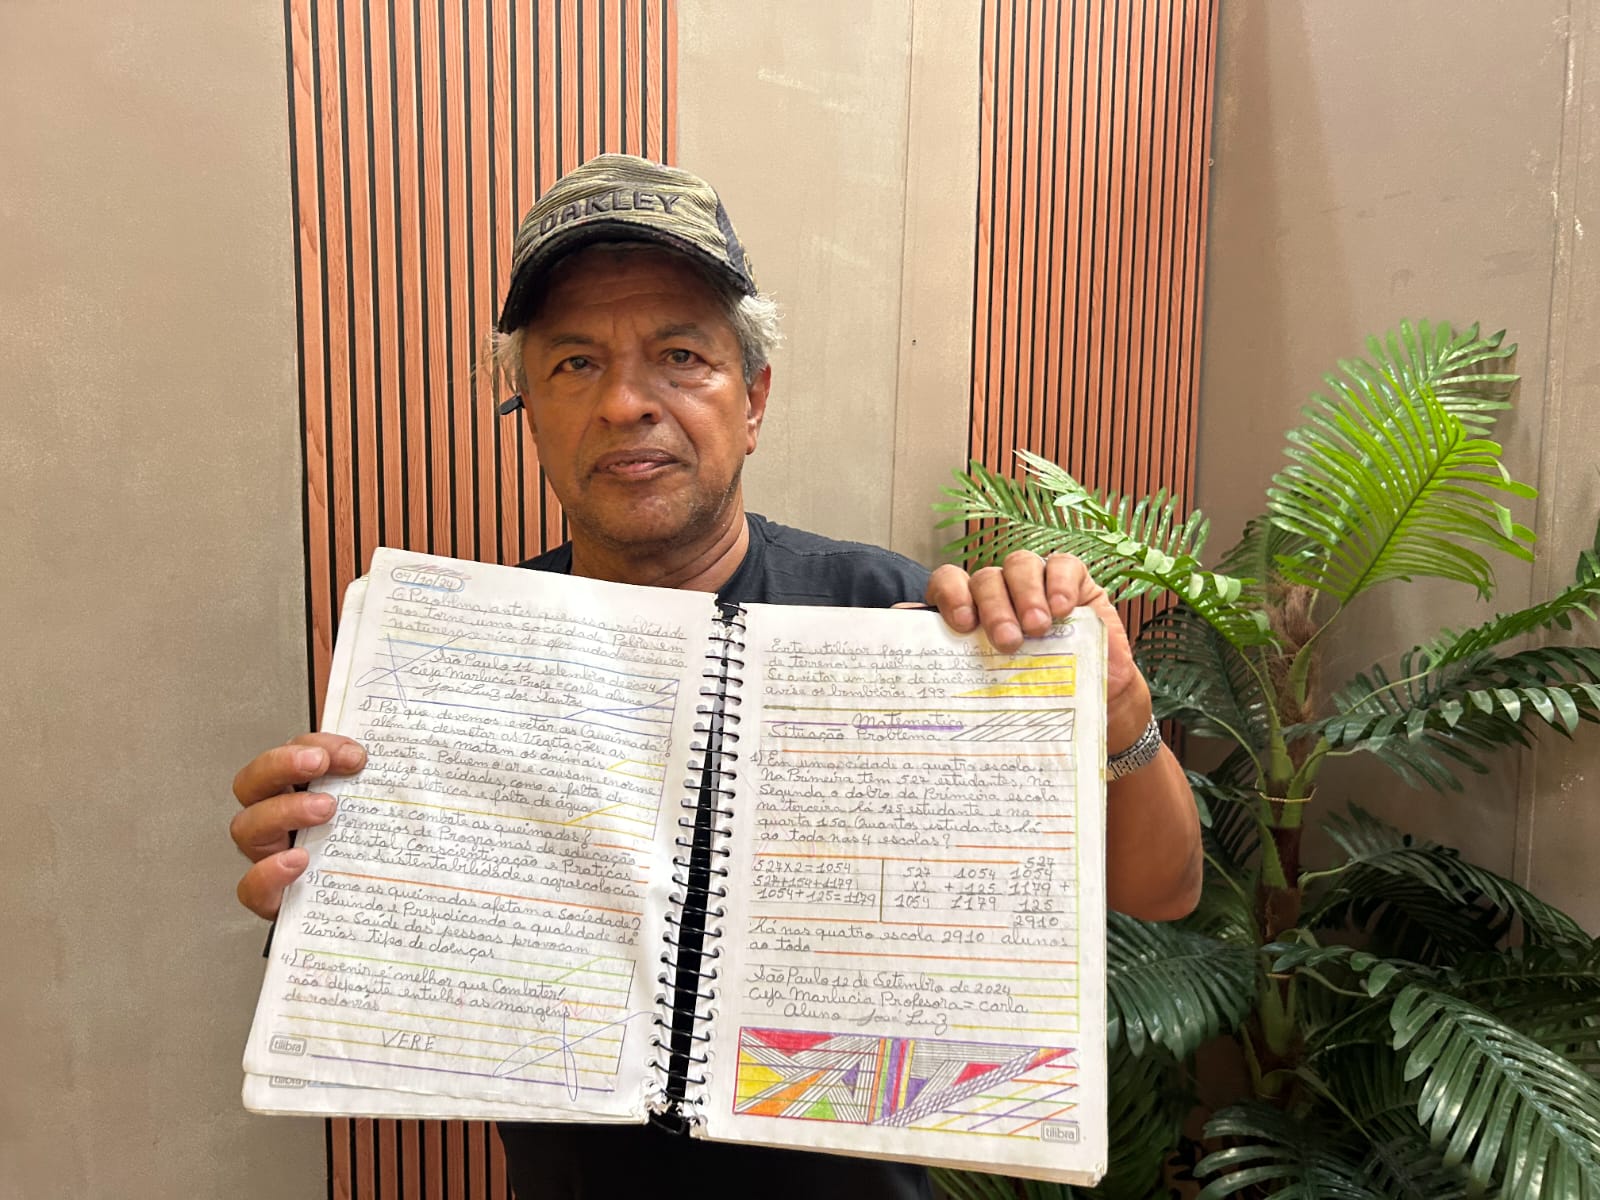 OAKLEY
09/10/24
Problema, antes que essa realidade
nos torne uma sociedade Pobre em
natureza e rica de
São Paulo 11 setembro de 2024
cieja Marlucia Profa = carla aluno
José Luiz dos Santos
1) Por que devemos evitar as Queimada?
além de devastar as Vegetações, as
Queimadas matam os animais
silvestre, Poluem o ar e causam enorme
prejuizo as cidades, como a falta de
energia eletrica e falta de água
Como se combate as queimadas?
Permeios de Programas de educação
abiental, Conscientização e Praticas
Como sustentabilidade e agroecolocia
3) Como as queimadas afetam a Sociedade?
Poluindo e Prejudicando a qualidade do
ar, a Saúde das pessoas provocam
Varios tipo de doenças
4) Prevenir é melhor que Combater!
não deposite entulho as margens
de rodovias
VERE
tilibra
tilibra
24
Evite utilizar fogo para
de terrenos e queima de lixo
Se avistar um fogo de incêndio
avise os bombeiros. 193
Matematica
Situação Problema
1) Em uma cidade a quatro escola,
Na Primeira tem 527 estudantes, na
Segunda o dobro da Primeira escola
na terceira há 125 estudante e na
quarta 150. Quantos estudantes há
ao todo nas 4 escolas?
527x2=1054
527+154+1179
1054+125=1179
527
x2
1054
1054
+ 125
1179
527
1054
1179 +
125
2910
Há nas quatro escola 2910 alunos
ao todo
São Paulo 12 de Setembro de 2024
Cieja Marlucia Professora = carla
Aluno José Luiz
tilibra